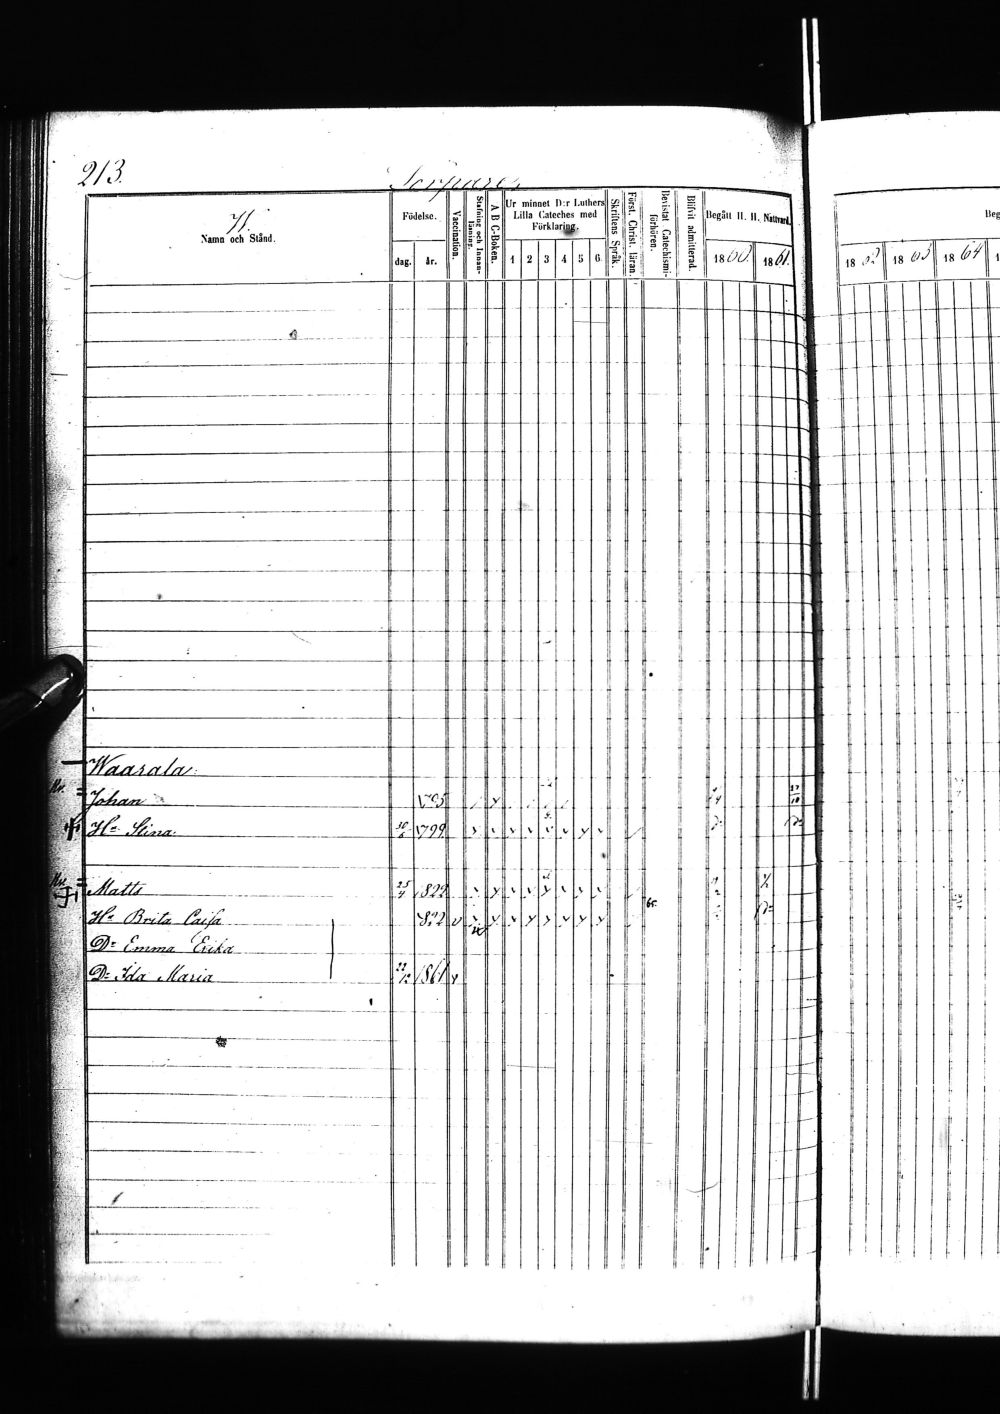 213.
Torpare
H.
Namn och Stånd.
Födelse.
dag. år.
Vaccination.
Stafning och Innanläsning.
A B C-Boken.
Ur minnet D:r Luthers Lilla Cateches med Förklaring.
1 2 3 4 5 6
Skriftens Språk.
Först. Christ. läran.
Bevistat Catechismiförhören.
Blifvit admitterad.
Begått H. H. Nattvard.
1860. 1861.
Beg
1862 1863 1864 1
Waarala.
Johan 795 27/10
H:u Stina. 30/6 799
Matts 25/4 1822
H:u Brita Caisa 822
D:r Emma Erika
D:r Ida Maria 22/12 1861